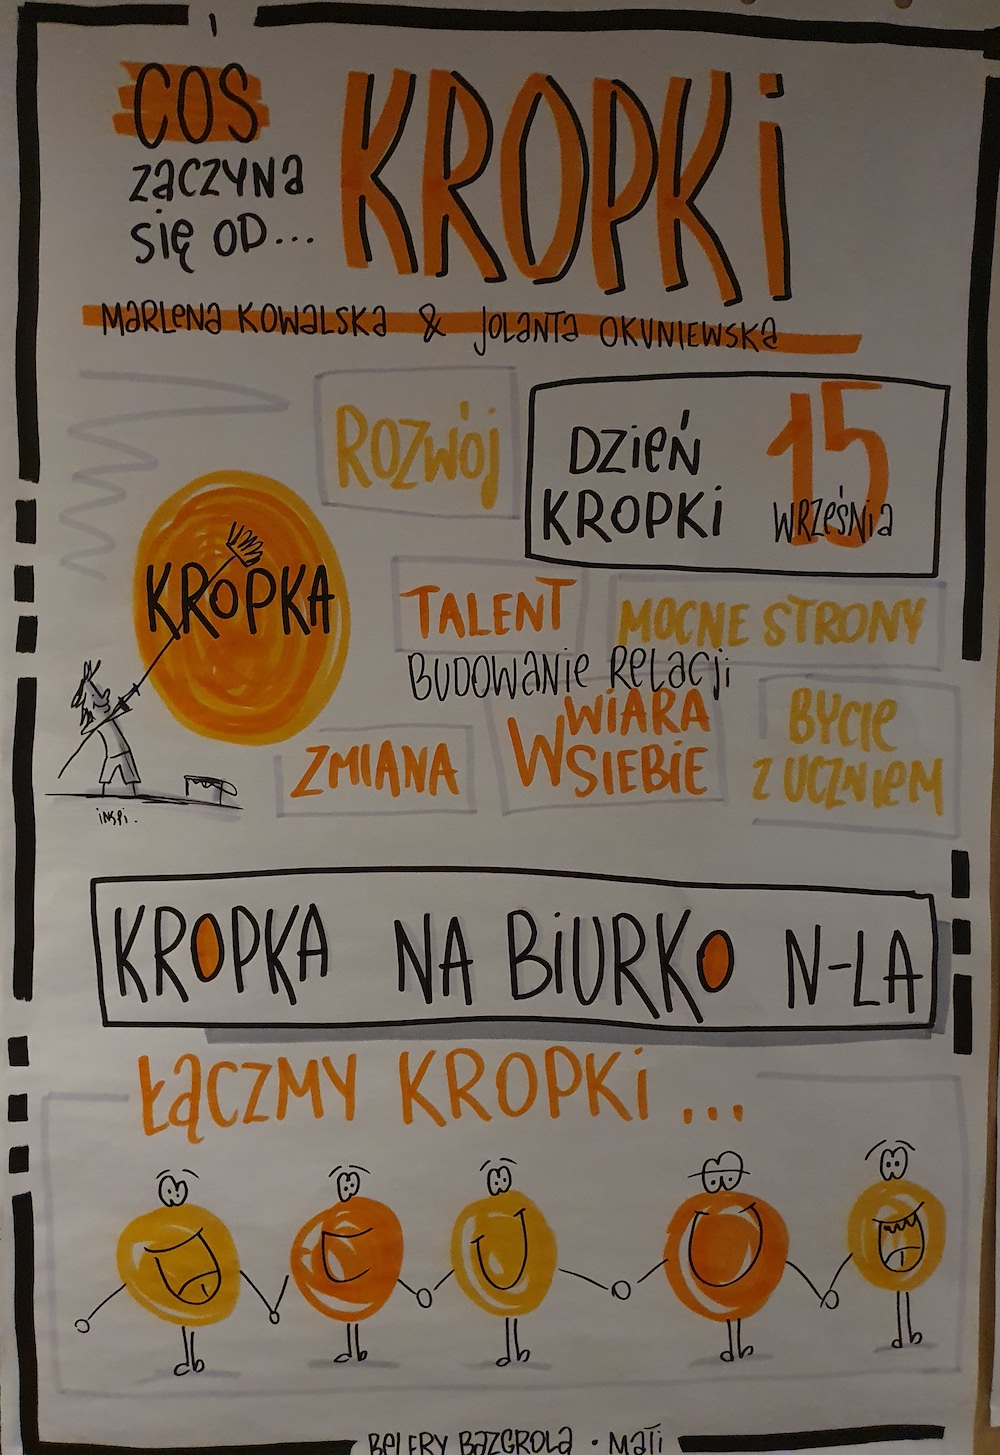 COŚ
ZACZYNA
SIĘ OD...
KROPKI
MARLENA KOWALSKA & JOLANTA OKUNIEWSKA
ROZWÓJ
DZIEŃ
KROPKI
15
WRZEŚNIA
KROPKA
TALENT
MOCNE STRONY
BUDOWANIE RELACJI
WIARA
W SIEBIE
BYCIE
Z UCZNIEM
ZMIANA
INSPI.
KROPKA NA BIURKO N-LA
ŁĄCZMY KROPKI...
BELFRY BAZGROLĄ • MATI